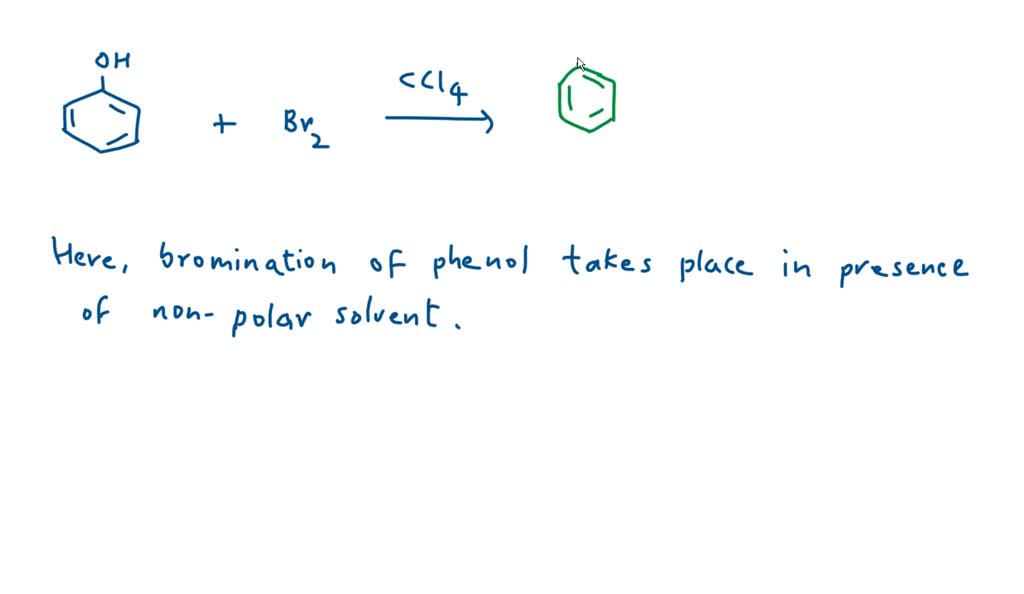 OH
+ Br2 CCl4
Here, bromination of phenol takes place in presence
of non-polar solvent.